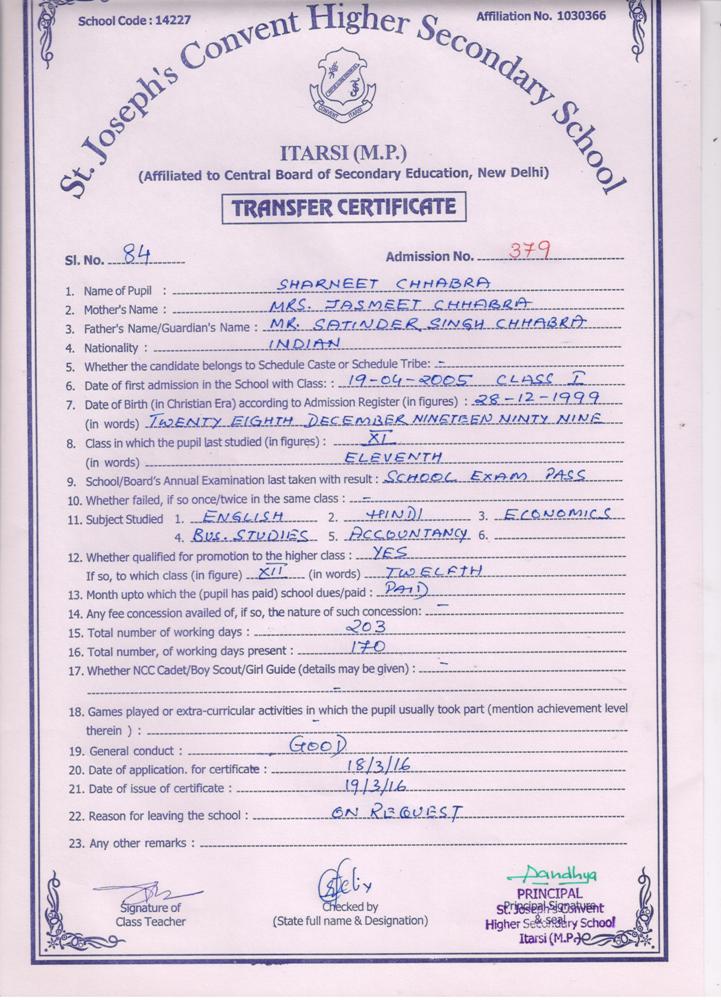 School Code : 14227
Affiliation No. 1030366
St. Joseph's Convent Higher Secondary School
ITARSI (M.P.)
(Affiliated to Central Board of Secondary Education, New Delhi)
TRANSFER CERTIFICATE
Sl. No. 84 Admission No. 379
1. Name of Pupil : SHARNEET CHHABRA
2. Mother's Name : MRS. JASMEET CHHABRA
3. Father's Name/Guardian's Name : MR. SATINDER SINGH CHHABRA
4. Nationality : INDIAN
5. Whether the candidate belongs to Schedule Caste or Schedule Tribe: -
6. Date of first admission in the School with Class: : 19-04-2005 CLASS I
7. Date of Birth (in Christian Era) according to Admission Register (in figures) : 28-12-1999
(in words) TWENTY EIGHTH DECEMBER NINETEEN NINTY NINE
8. Class in which the pupil last studied (in figures) : XI
(in words) ELEVENTH
9. School/Board's Annual Examination last taken with result : SCHOOL EXAM PASS
10. Whether failed, if so once/twice in the same class : -
11. Subject Studied 1. ENGLISH 2. HINDI 3. ECONOMICS
4. BUS. STUDIES 5. ACCOUNTANCY 6.
12. Whether qualified for promotion to the higher class : YES
If so, to which class (in figure) XII (in words) TWELFTH
13. Month upto which the (pupil has paid) school dues/paid : PAID
14. Any fee concession availed of, if so, the nature of such concession: -
15. Total number of working days : 203
16. Total number, of working days present : 170
17. Whether NCC Cadet/Boy Scout/Girl Guide (details may be given) : -
-
18. Games played or extra-curricular activities in which the pupil usually took part (mention achievement level
therein ) : -
19. General conduct : GOOD
20. Date of application. for certificate : 18/3/16
21. Date of issue of certificate : 19/3/16
22. Reason for leaving the school : ON REQUEST
23. Any other remarks :
Signature of
Class Teacher
Checked by
(State full name & Designation)
PRINCIPAL
Principal Signature
& seal
St. Joseph's Convent
Higher Secondary School
Itarsi (M.P.)